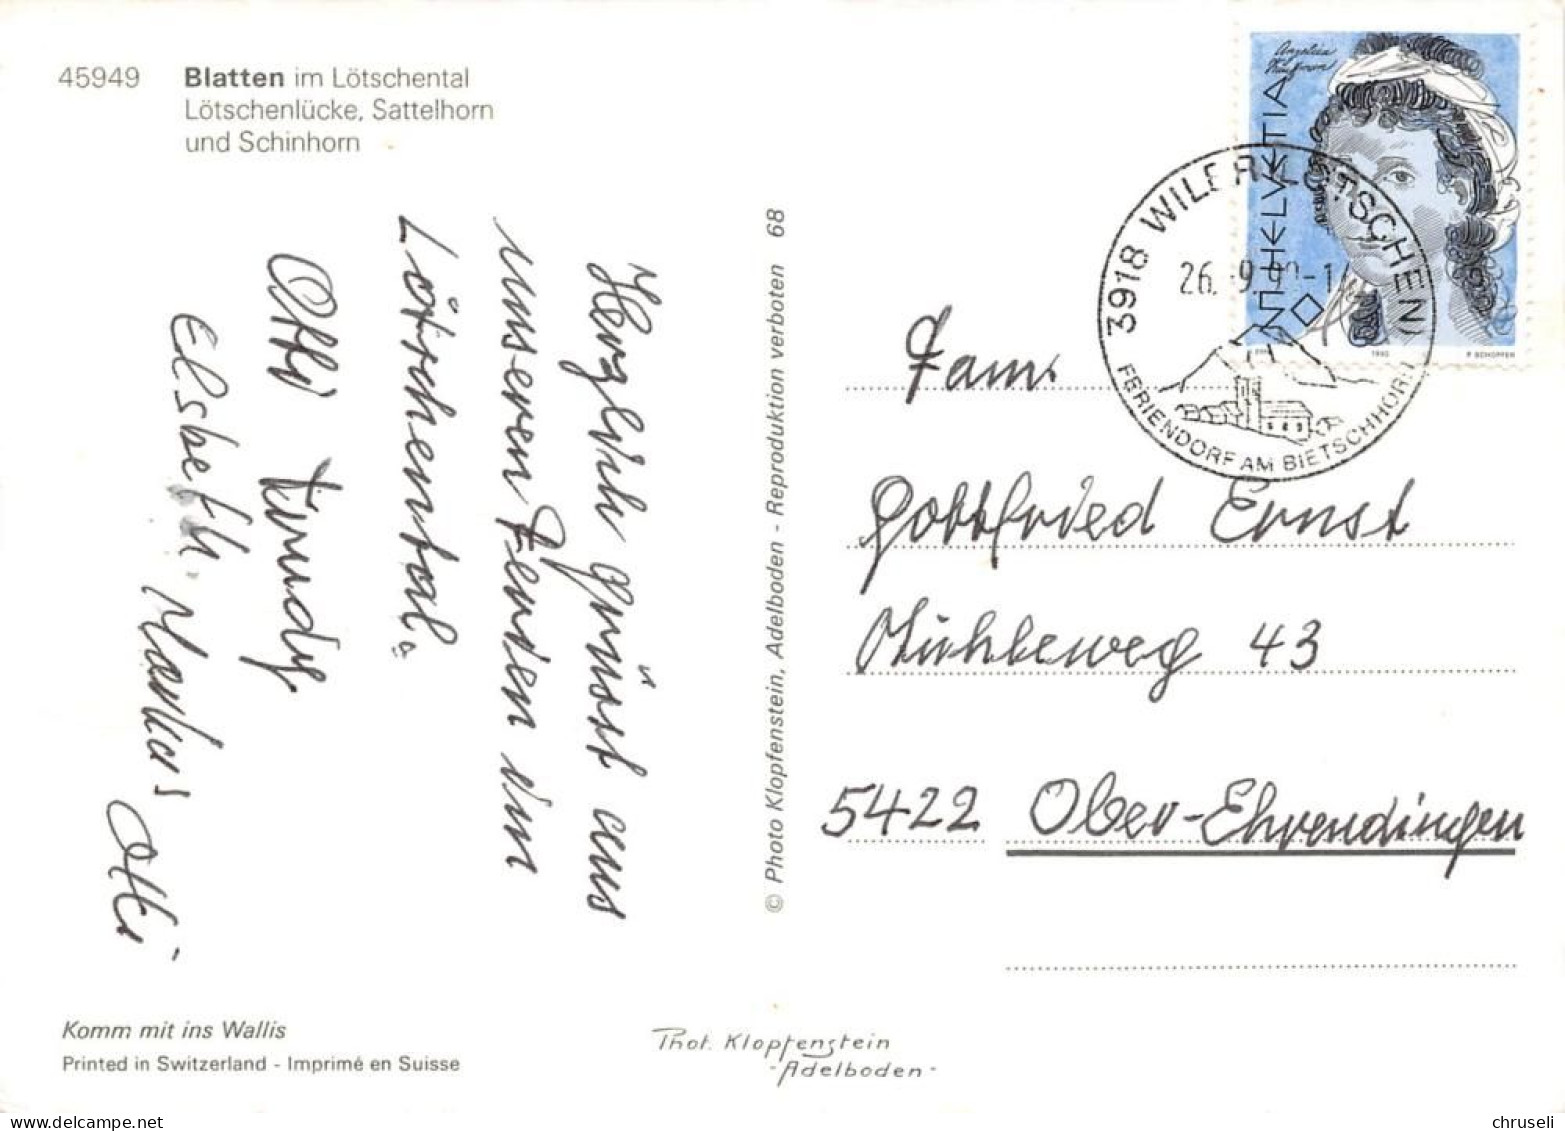 45949 Blatten im Lötschental
Lötschenlücke, Sattelhorn
und Schinhorn
Herzlich grüsst aus
unseren Ferien im
Lötschental.
Otti Trudy
Elsbeth. Markus
Otti
© Photo Klopfenstein, Adelboden - Reproduktion verboten 68
Angelica
Kaufmann
HELVETIA
80
1990
P. SCHOPFER
3918 WILER (LÖTSCHEN)
26. 9. 90-1
FERIENDORF AM BIETSCHHORN
Fam.
Gottfried Ernst
Mühleweg 43
5422 Ober-Ehrendingen
Komm mit ins Wallis
Printed in Switzerland - Imprimé en Suisse
Phot. Klopfenstein
- Adelboden -
chruseli